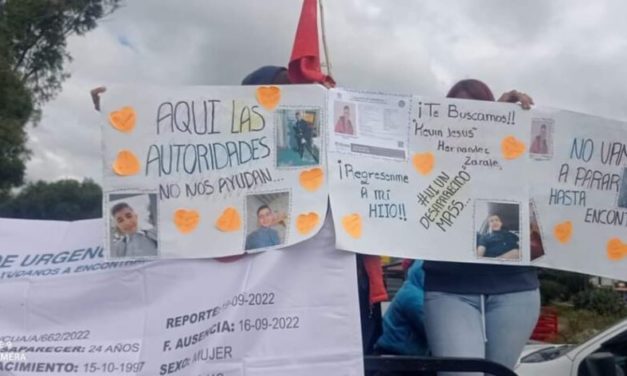 AQUI LAS
AUTORIDADES
NO NOS AYUDAN...
¡Regresenme
A MI
HIJO!!
¡Te Buscamos!!
"Kevin Jesus"
Hernandez
Zarate.
UN
DESAPARECIDO
MASS...
NO VAN
A PARAR
HASTA
ENCONT
DE URGEN
YUDANOS A ENCONT
CUA/A/662/2022
SAPARECER: 24 AÑOS
CIMIENTO: 15-10-1997
REPORTE: -09-2022
F. AUSENCIA: 16-09-2022
SEXO: MUJER
MERA